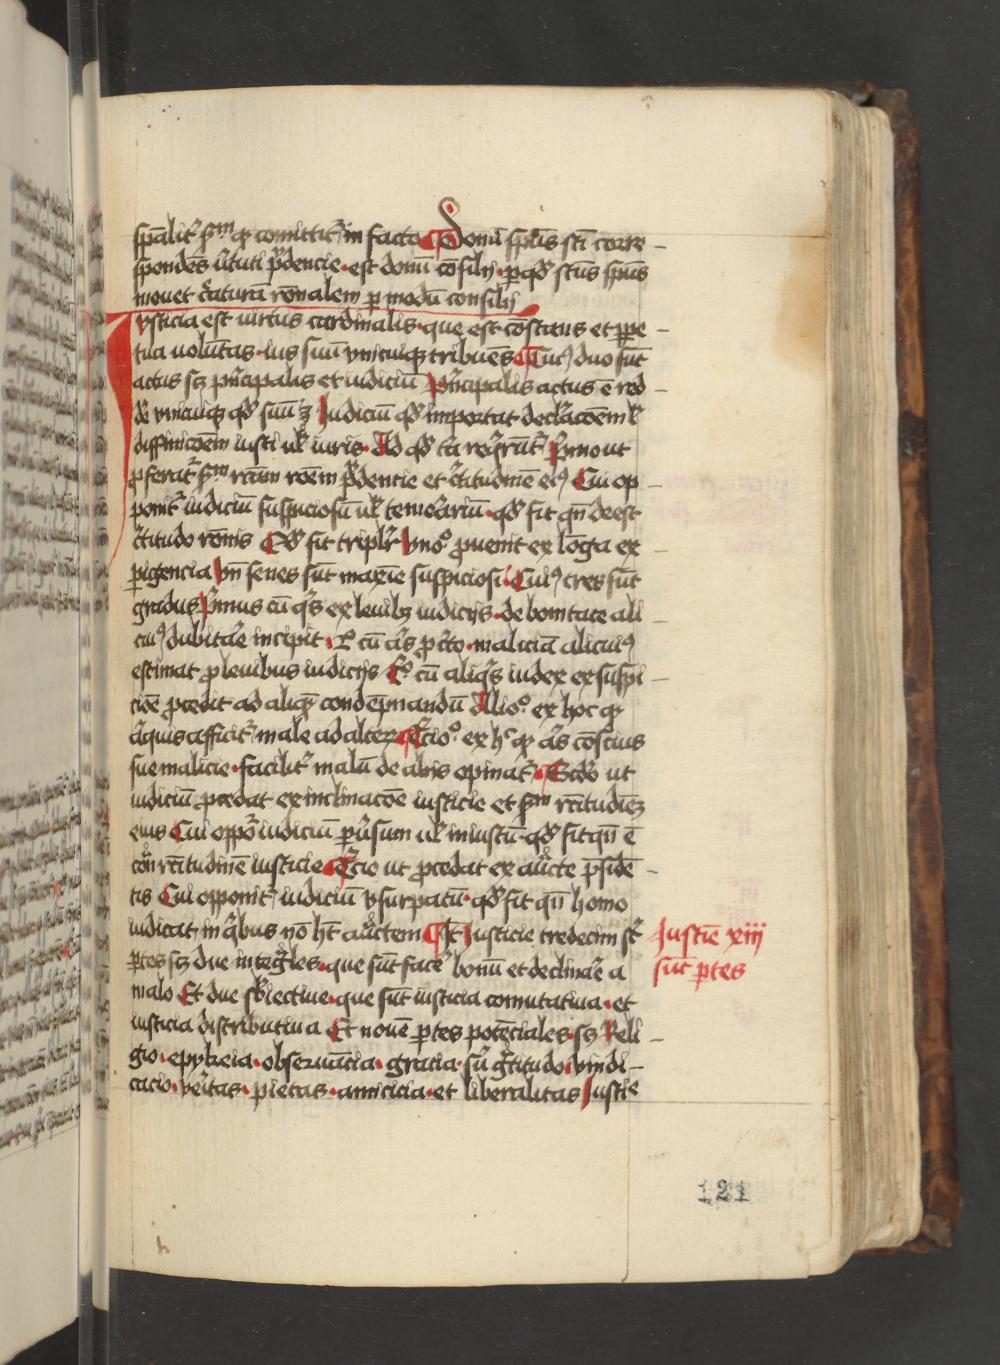 spalit' scdm qd comittit' in facto ¶ Donū spūs scī corre-
spondēs v'tuti prudencie · est donū cōsilij · per qd scūs spūs
mouet c'aturā rōnalem p modū consilij
Iusticia est uirtus cardinalis · que est cōstans et ppe-
tua volūtas · ius suū vnicuiq tribuēs ¶ Cui9 duo sūt
actus sz p'ncipalis et iudiciū p'ncipalis actus ē red-
de' vnicuiq qd suū ē Iudiciū qd importat declacoēm ul'
diffinicoēm iusti ul' iuris · Ad qd tria requirūt' Primo ut
proferat' scdm rectam rōem prudencie et c'titudinē ei9 Cui op-
ponit' iudiciū suspiciosū ul' temerariū · qd fit qn deest
c'titudo rōnis Qd fit triplr Vno° prouenit ex lōga ex-
perigencia Vn senes sūt maxīe suspiciosi · Cui9 tres sūt
gradus Primus cū q's ex leuibz iudicijs · de bonitate ali-
cui9 dubitare incipit · 2° cū al's pro c'to · maliciā alicui9
estimat pro leuibus iudicijs 3° cū aliq's iudex ex suspi-
ciōe procedit ad aliquem condēpnandū Alio° ex hoc qd
aliquis afficit' male ad alterū ¶ Tercio° ex h° qd al's cōscius
sue malicie · facilit' malū de alijs opinat' ¶ Scdo ut
iudiciū procedat ex inclinacōe iusticie et scdm rectitudinēz
eius Cui oppō' iudiciū peruersum ul' iniustū · qd fit qn ē
cont' rectitudinē iusticie ¶ Tercio ut procedat ex auctte presidē-
tis Cui opponit' iudiciū vsurpatū · qd fit qn homo
iudicat in q'bus nō ht auctoritatem ¶ Et Iusticie tredecim st'
ptes sz due integ'les · que sūt face' bonū et declinare a
malo Et due sbiectiue · que sūt iusticia comutatiua · et
iusticia distributiua Et nouē ptes potēciales · sz Reli-
gio · epykeia · obseruācia · gracia · su' g'titudo · vindi-
cacio · veritas · pietas · amicicia · et liberalitas Iustie
Iustie xiij
sūt ptes
121